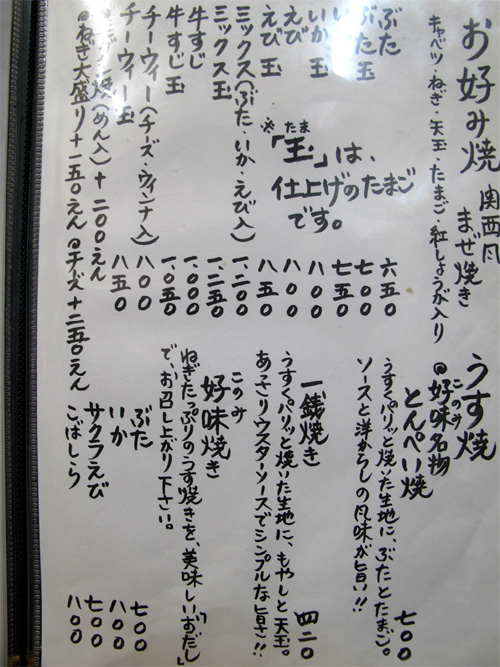 お好み焼 関西風 まぜ焼き
キャベツ・ねぎ・天玉・たまご・紅しょうが入り
ぶた 六五〇
ぶた玉 七〇〇
いか 七五〇
いか玉 八〇〇
えび 八〇〇
えび玉 八五〇
ミックス(ぶた・いか・えび入) 一、二〇〇
ミックス玉 一、二五〇
牛すじ 一、〇〇〇
牛すじ玉 一、〇五〇
チーウィー(チーズ・ウィンナ入) 八〇〇
チーウィー玉 八五〇
焼(めん入)+二〇〇えん
◎ねぎ大盛り+一五〇えん ◎チーズ+二五〇えん
たま
※「玉」は、
仕上げのたまご
です。
うす焼
このみ
◎好味名物
とんぺい焼 七〇〇
うすくパリッと焼いた生地に、ぶたとたまご。
ソースと洋からしの風味が旨い!!
一銭焼き 四二〇
うすくパリッと焼いた生地に、もやしと天玉。
あっさりウスターソースでシンプルな旨さ!!
このみ
好味焼き
ねぎたっぷりのうす焼きを、美味しい"おだし"
で、お召し上がり下さい。
ぶた 七〇〇
いか 八〇〇
サクラえび 七〇〇
こばしら 八〇〇